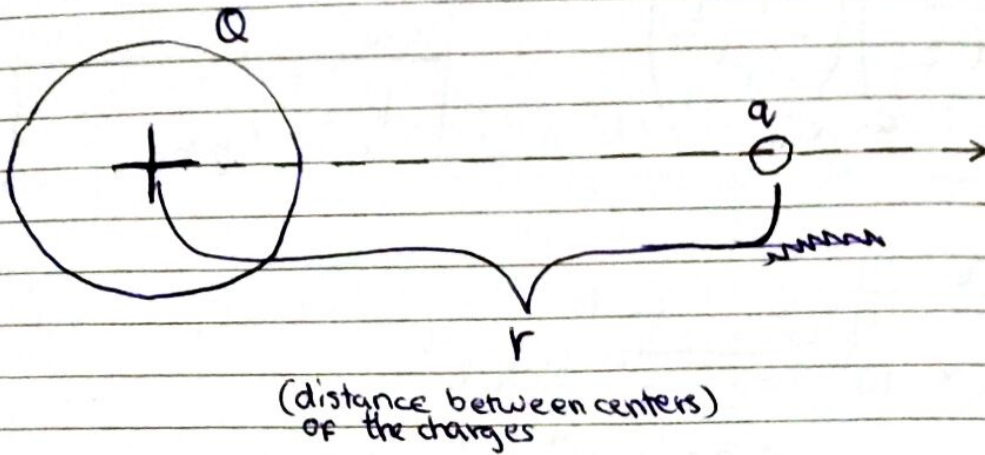 Q
q
r
(distance between centers)
of the charges